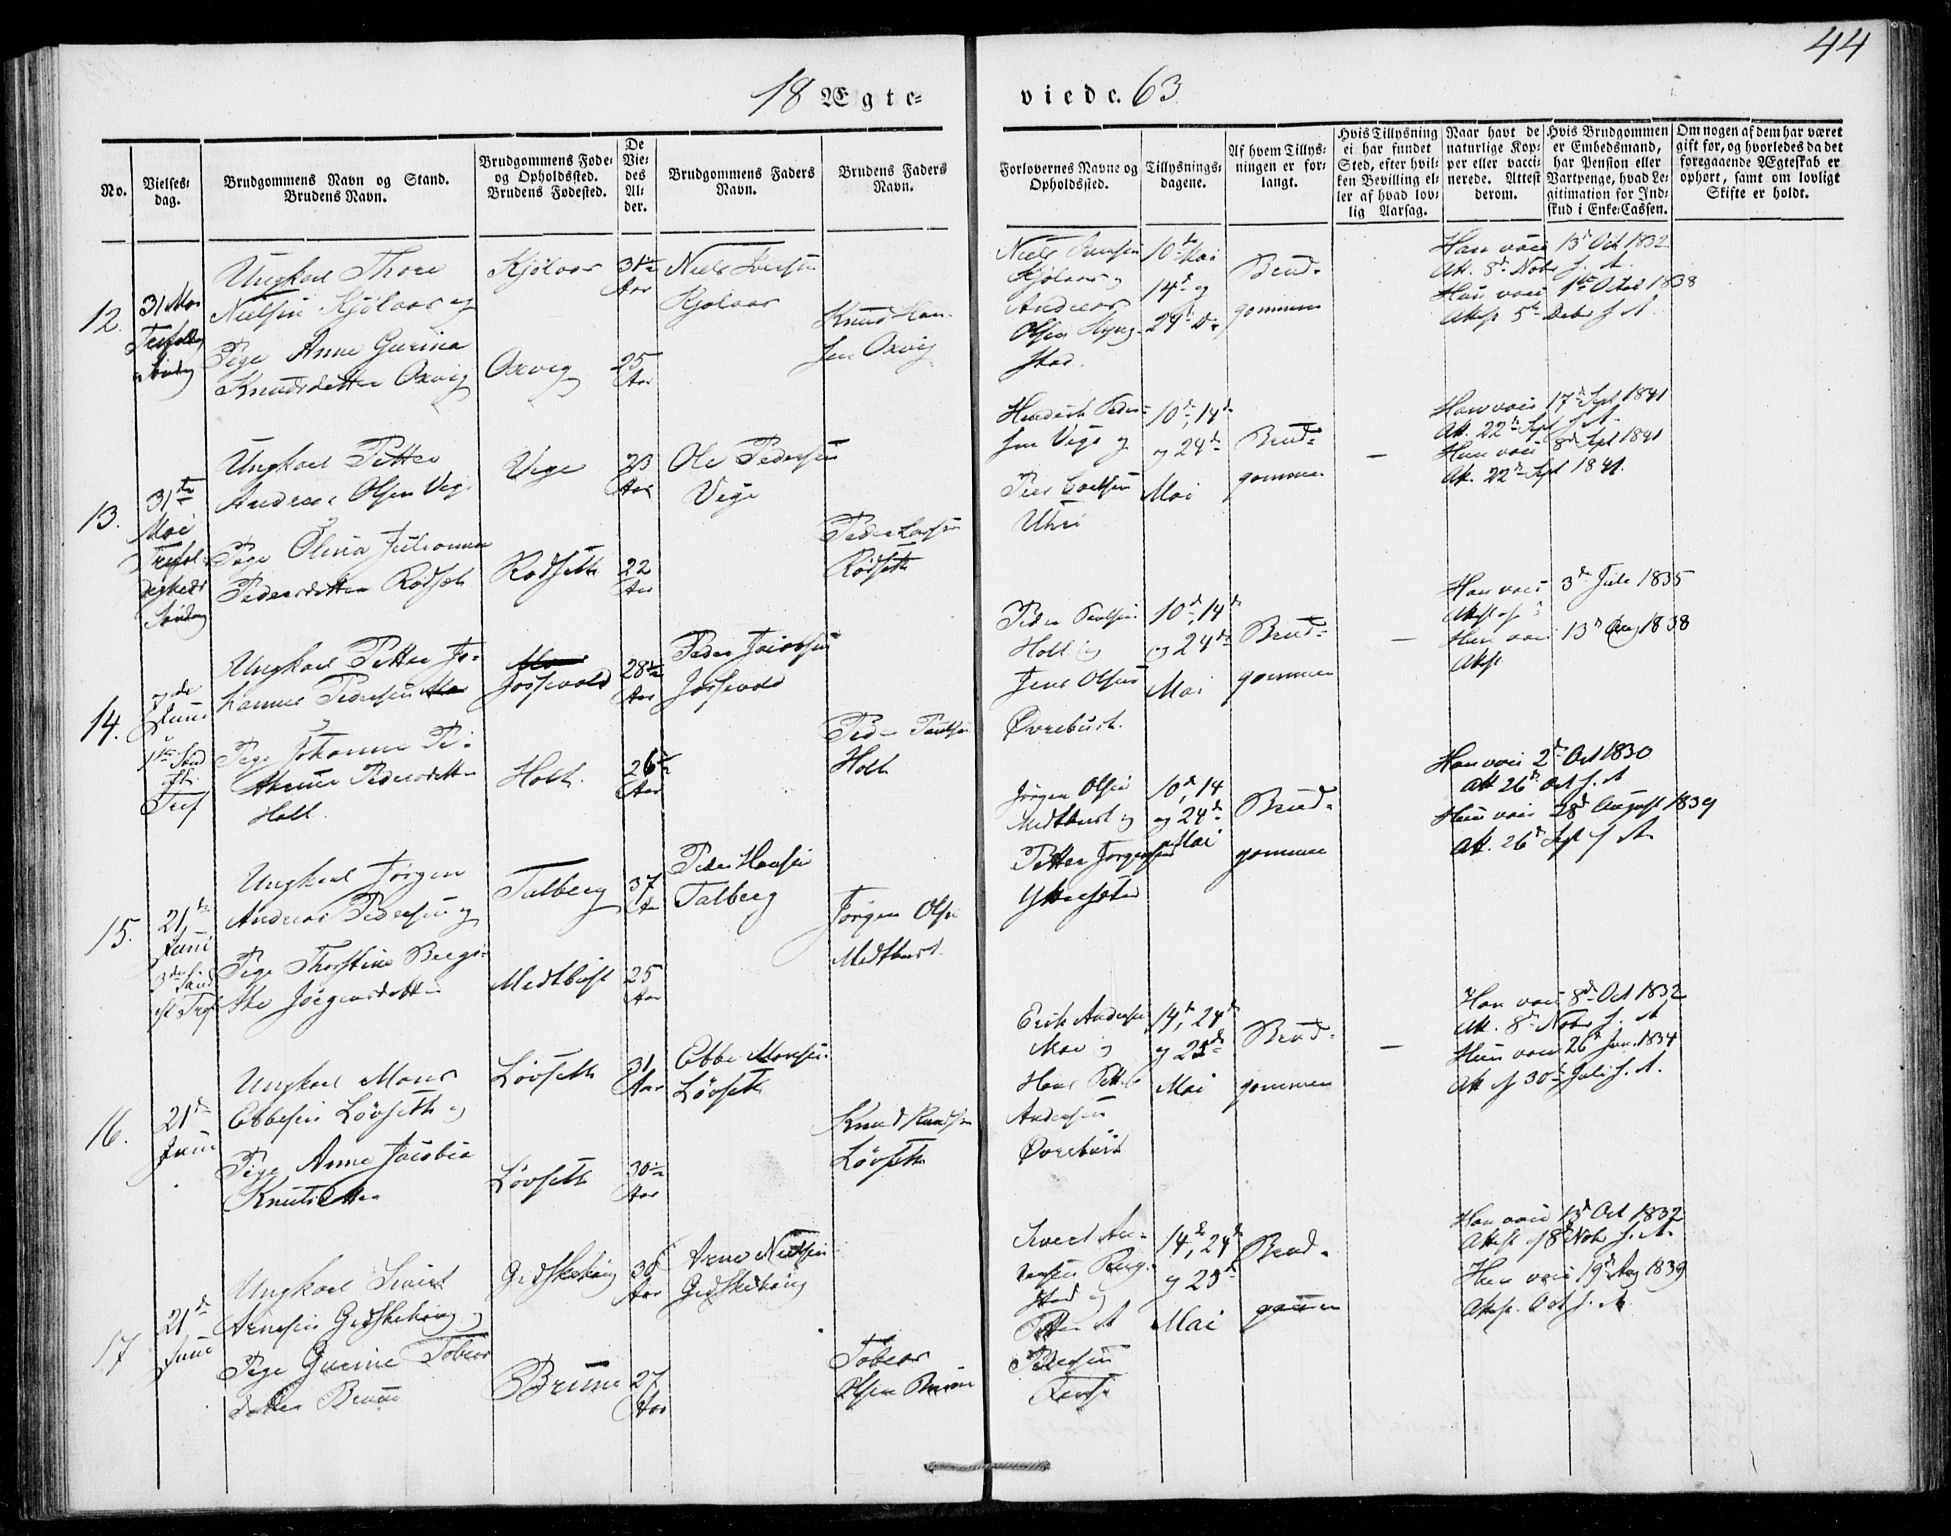 44
18 Ægte-
viede. 63
No.
Vielses-
dag.
Brudgommens Navn og Stand.
Brudens Navn.
Brudgommens Føde-
og Opholdssted.
Brudens Fødested.
De
Vie-
des
Al-
der.
Brudgommens Faders
Navn.
Brudens Faders
Navn.
Forlovernes Navne og
Opholdssted.
Tillysnings-
dagene.
Af hvem Tillys-
ningen er for-
langt.
Hvis Tillysning
ei har fundet
Sted, efter hvil-
ken Bevilling el-
ler af hvad lov-
lig Aarsag.
Naar havt de
naturlige Kop-
per eller vacci-
nerede. Attest
derom.
Hvis Brudgommen
er Embedsmand,
har Pension eller
Vartpenge, hvad Le-
gitimation for Ind-
skud i Enke-Cassen.
Om nogen af dem har været
gift før, og hvorledes da det
foregaaende Ægteskab er
ophørt, samt om lovligt
Skifte er holdt.
12.
31 Mai
Ungkarl Thore
Nielsen Kjølaas og
Pige Anne Gurina
Knudsdatter Oxvig
Kjølaas
Oxvig
25
Aar
Niels
Kjølaas
Knud Han-
sen Oxvig
Niels
Kjølaas og
Andreas
Olsen
stad.
10de Mai
14d og
24d
Brud-
gommen
Han vac 13d Oct 1832
Att. 8d Nobr s. A.
Hun vac 1ste Octob 1838
Attest 5te Debr s A.
13.
31te
Mai
Trefol-
digheds
Søndag
Ungkarl Petter
Andreas Olsen Vege
Pige Olina Julianna
Pedersdatter Rødseth
Vege
Rødseth
23
Aar
22
Aar
Ole Pedersen
Vege
Peder
Rødseth
Henderik Peder-
sen Vege og
Peer
10d, 14d
og 24d
Mai
Brud-
gommen
–
Han vac 17d Sept 1841
Att. 22d Sept s. A.
Hun vac 8d Sept 1841
Att. 22d Sept 1841.
14.
7de
Juni
1ste Sønd
Tref
Ungkarl Petter
Pedersen
Pige Johanne
Pedersdatter
Holt.
Holt.
28
Aar
26
Aar
Peder
Peder
Holt
Peder
Holt og
Jens Olsen
Øvrebust.
10d, 14d
og 24d
Mai
Brud-
gommen
–
Han vac 3d Juli 1835
Hun vac 13d Aug 1838
Attest
15.
21de
Juni
3die Sønd
Ungkarl Jørgen
Andreas Pedersen og
Pige Thorstine Berge-
the Jørgensdatter
Talberg
Medtbust
37
25
Aar
Peder Hansen
Talberg
Jørgen Olsen
Medtbust.
Jørgen Olsen
Medtbust og
Petter Jørgensen
10d, 14
og 24d
Mai
Brud-
gommen
Han vac 2d Oct 1830
Att 26d Oct s. A
Hun vac 28d August 1839
Att. 26d Sept s A.
16.
21de
Juni
Ungkarl Mons
Ebbesen Løvseth og
Pige Anne Jacobia
Knutsdatter
Løvseth
Løvseth
31
Aar
30
Aar
Ebbe Monsen
Løvseth
Knud Knudsen
Løvseth
Erik Andersen
Moe og
Hans
Andersen
Øvrebust
14d, 24d
og 25d
Mai
Brud-
gommen
–
Han vac 8d Oct 1832
Att. 8d Nobr s. A
Hun vac 26d Jun. 1834
Att s 30d Juli s. A.
17
21de
Juni
Ungkarl Sivert
Arnesen Gedskehaug og
Pige Gurine Tobias
datter Brune
Gedskehaug
Brune
Aar
27
Aar
Arne Nielsen
Gedskehaug
Tobias
Olsen Brune
Sivert
stad og
Petter A
Pedersen
14d, 24d
og 25d
Mai
Brud-
gommen
Han vac 13d Oct 1832
Attest 8d Nob s. A.
Hun vac 19d Aug 1839
Attest. Oct s. A.